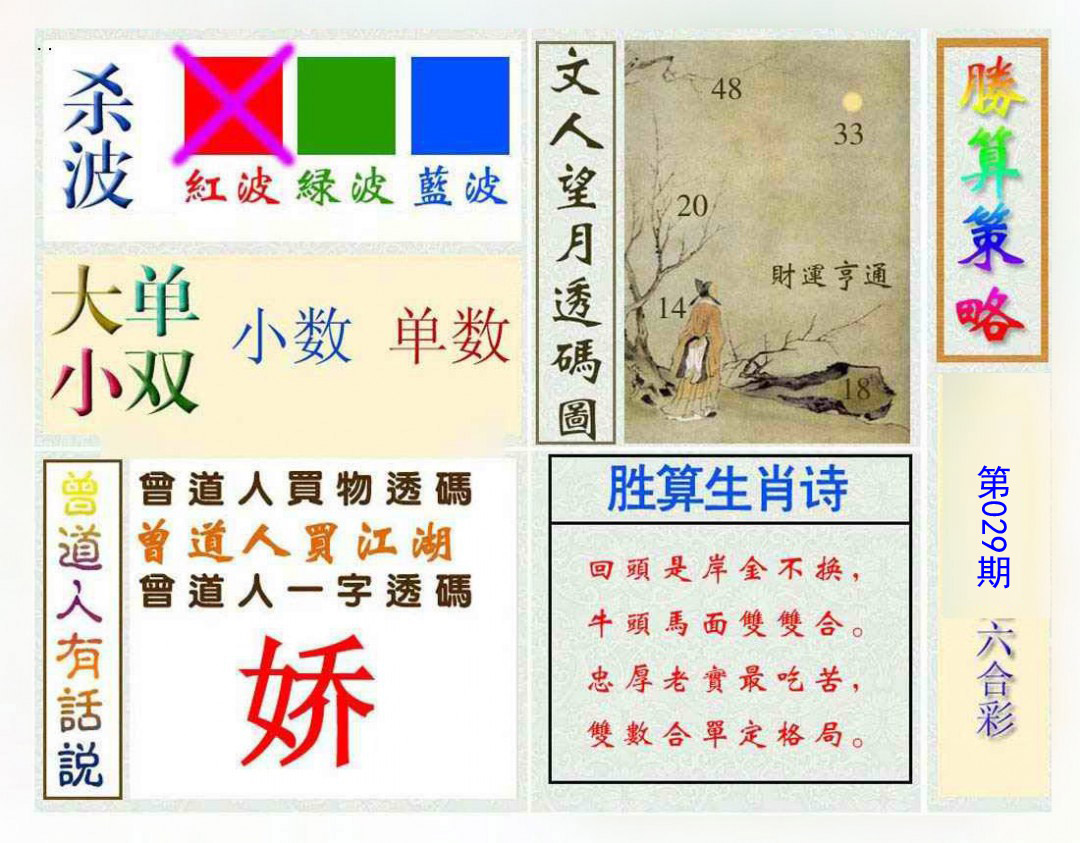 . .
杀波
紅波 緑波 藍波
大单
小双
小数 单数
文人望月透碼圖
48
33
20
財運亨通
14
18
勝算策略
第029期
六合彩
曾道人有話説
曾道人買物透碼
曾道人買江湖
曾道人一字透碼
娇
胜算生肖诗
回頭是岸金不换，
牛頭馬面雙雙合。
忠厚老實最吃苦，
雙數合單定格局。